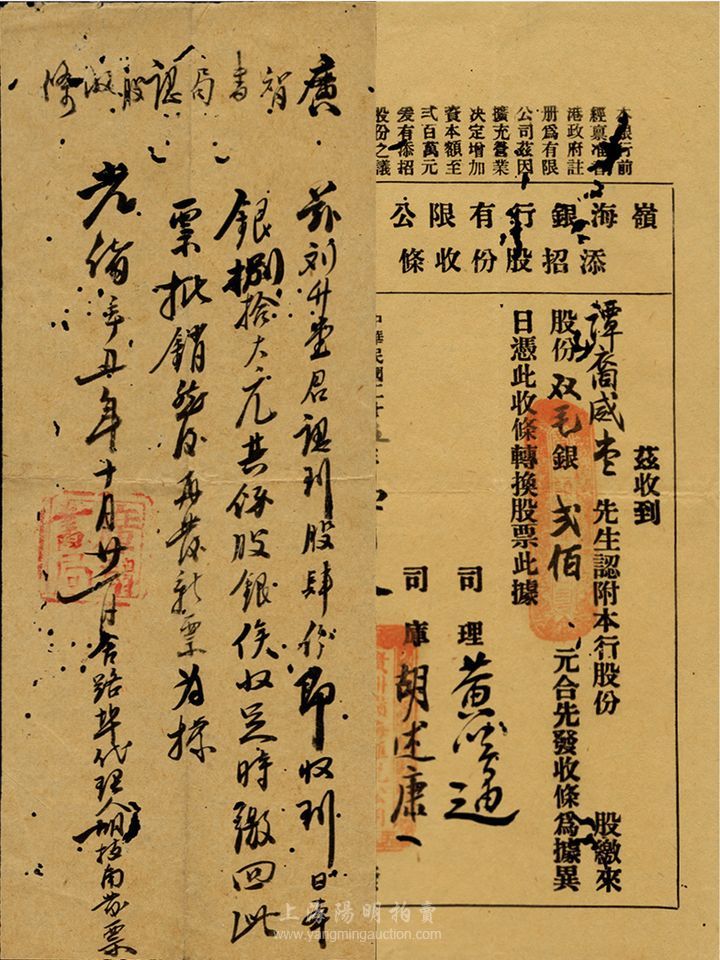 本銀行前
經稟准香
港政府註
册爲有限
公司茲因
擴充營業
決定增加
資本額至
弍百萬元
爰有添招
股份之議
嶺海銀行有限公
添招股份收條
茲收到
譚裔威堂先生認附本行股份 股繳來
股份双毛銀弍佰元合先發收條爲據異
日憑此收條轉換股票此據
司理 黄
司庫 胡述康
中華民國二十
廣智書局認股收條
茲刘升堂君認到股肆份即收到日本
銀捌拾大元共係股銀俟收足時繳回此
票批銷然後再發新票为據
光緒辛丑年十月廿 日舍路埠代理人胡枝南發票
上海陽明拍賣
www.yangmingauction.com